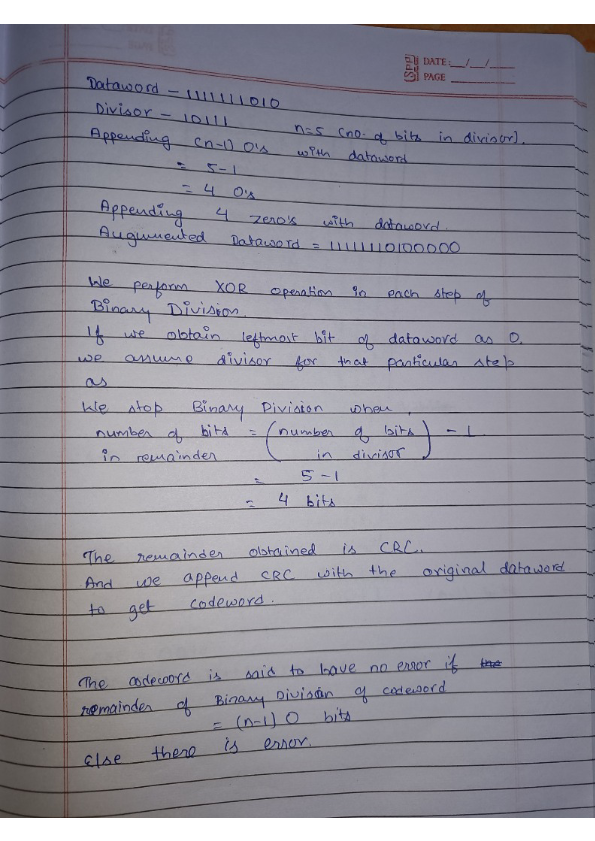 SPP
DATE: __/__/____
PAGE ________
Dataword - 1111111010
Divisor - 10111 n=5 (no. of bits in divisor).
Appending (n-1) 0's with dataword
= 5-1
= 4 0's
Appending 4 zero's with dataword.
Augumented Dataword = 11111110100000
We perform XOR operation in each step of
Binary Division.
If we obtain leftmost bit of dataword as 0.
we assume divisor for that particular step
as
We stop Binary Division when,
number of bits = (number of bits) - 1
in remainder in divisor
= 5-1
= 4 bits
The remainder obtained is CRC.
And we append CRC with the original dataword
to get codeword.
The codeword is said to have no error if the
remainder of Binary Division of codeword
= (n-1) 0 bits
Else there is error.